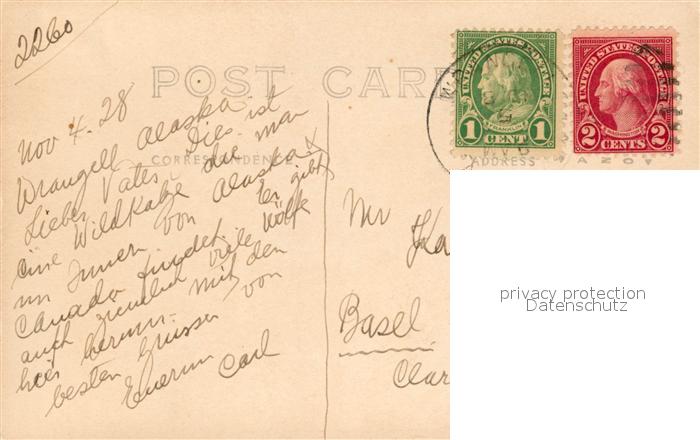 2260
POST CAR
CORRESPONDENCE
ADDRESS
UNITED STATES POSTAGE
FRANKLIN
1 CENT 1
UNITED STATES POSTAGE
WASHINGTON
2 CENTS 2
Nov 4. 28
Wrangell Alaska
Lieber Vater. Dies ist
eine Wildkatze die man
im Innern von Alaska &
Canada findet. Er gibt
auch ziemlich viele Wölfe
hier herum. Mit den
besten Grüssen von
Euerm Carl
Mr
Ka
Basel
Clar
privacy protection
Datenschutz